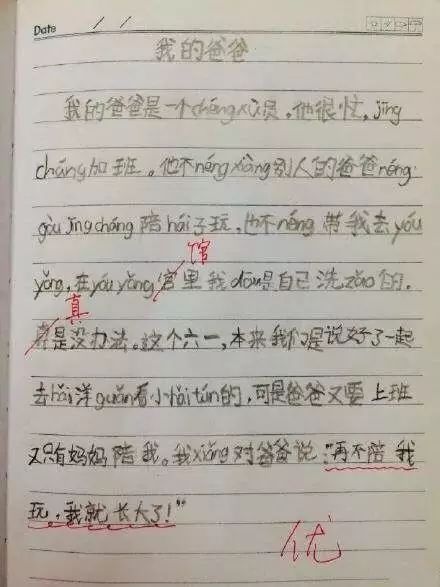 Date / /
我的爸爸
我的爸爸是一个chéngxù员,他很忙,jīng
cháng加班。他不néngxiàng别人的爸爸néng
gòu jīngcháng陪hái子玩,也不néng带我去yóu
馆
yǒng,在yóuyǒng官里我dōu是自己洗zǎo的。
真
是没办法。这个六一,本来我们是说好了一起
去hǎi洋guǎn看小hǎitún的,可是爸爸又要上班
又只有妈妈陪我。我xiǎng对爸爸说:"再不陪我
玩,我就长大了!"
优